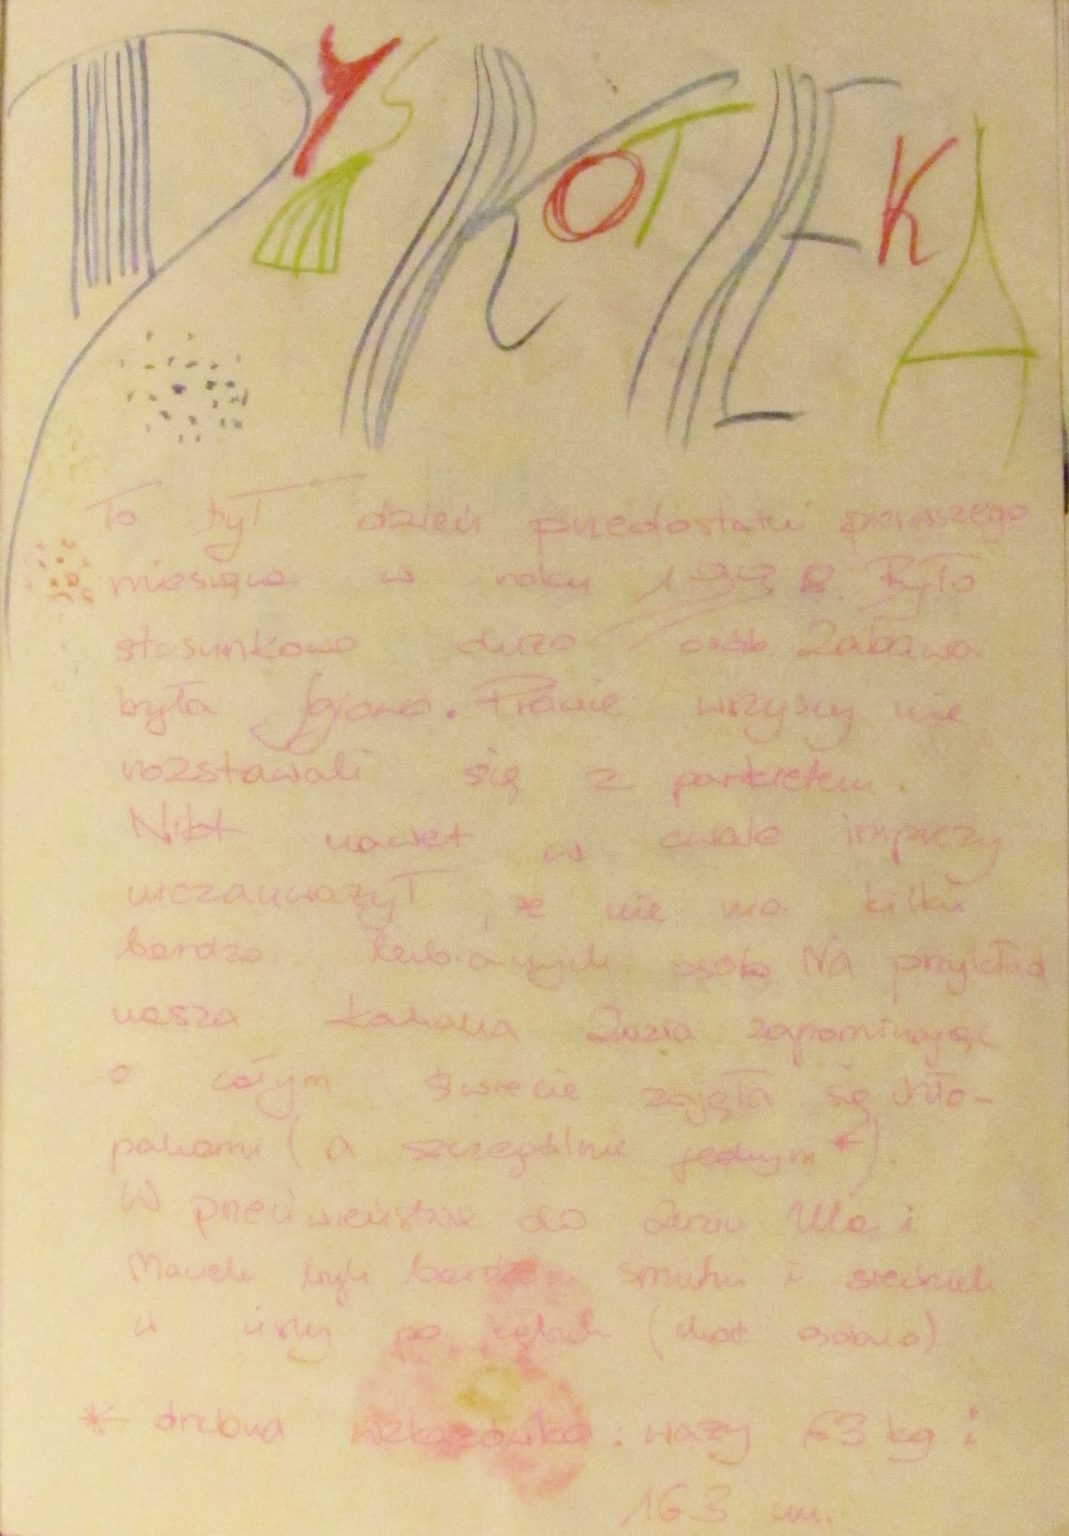 DYSKOTEKA
To był dzień przedostatni pierwszego
miesiąca w roku 1998. Było
stosunkowo dużo osób. Zabawa
była fajowa. Prawie wszyscy nie
rozstawali się z parkietem.
Nikt nawet w czasie imprezy
niezauważył, że nie ma kilku
bardzo lubianych osób. Na przykład
nasza kochana Zuzia zapominając
o całym świecie zajęła się chło-
pakami (a szczególnie jednym*).
W przeciwieństwie do Zuzi Ula i
Maciek byli bardzo smutni i siedzieli
w ciszy po kątach (choć osobno)
* drobna wskazówka: waży 63 kg i
163 cm.